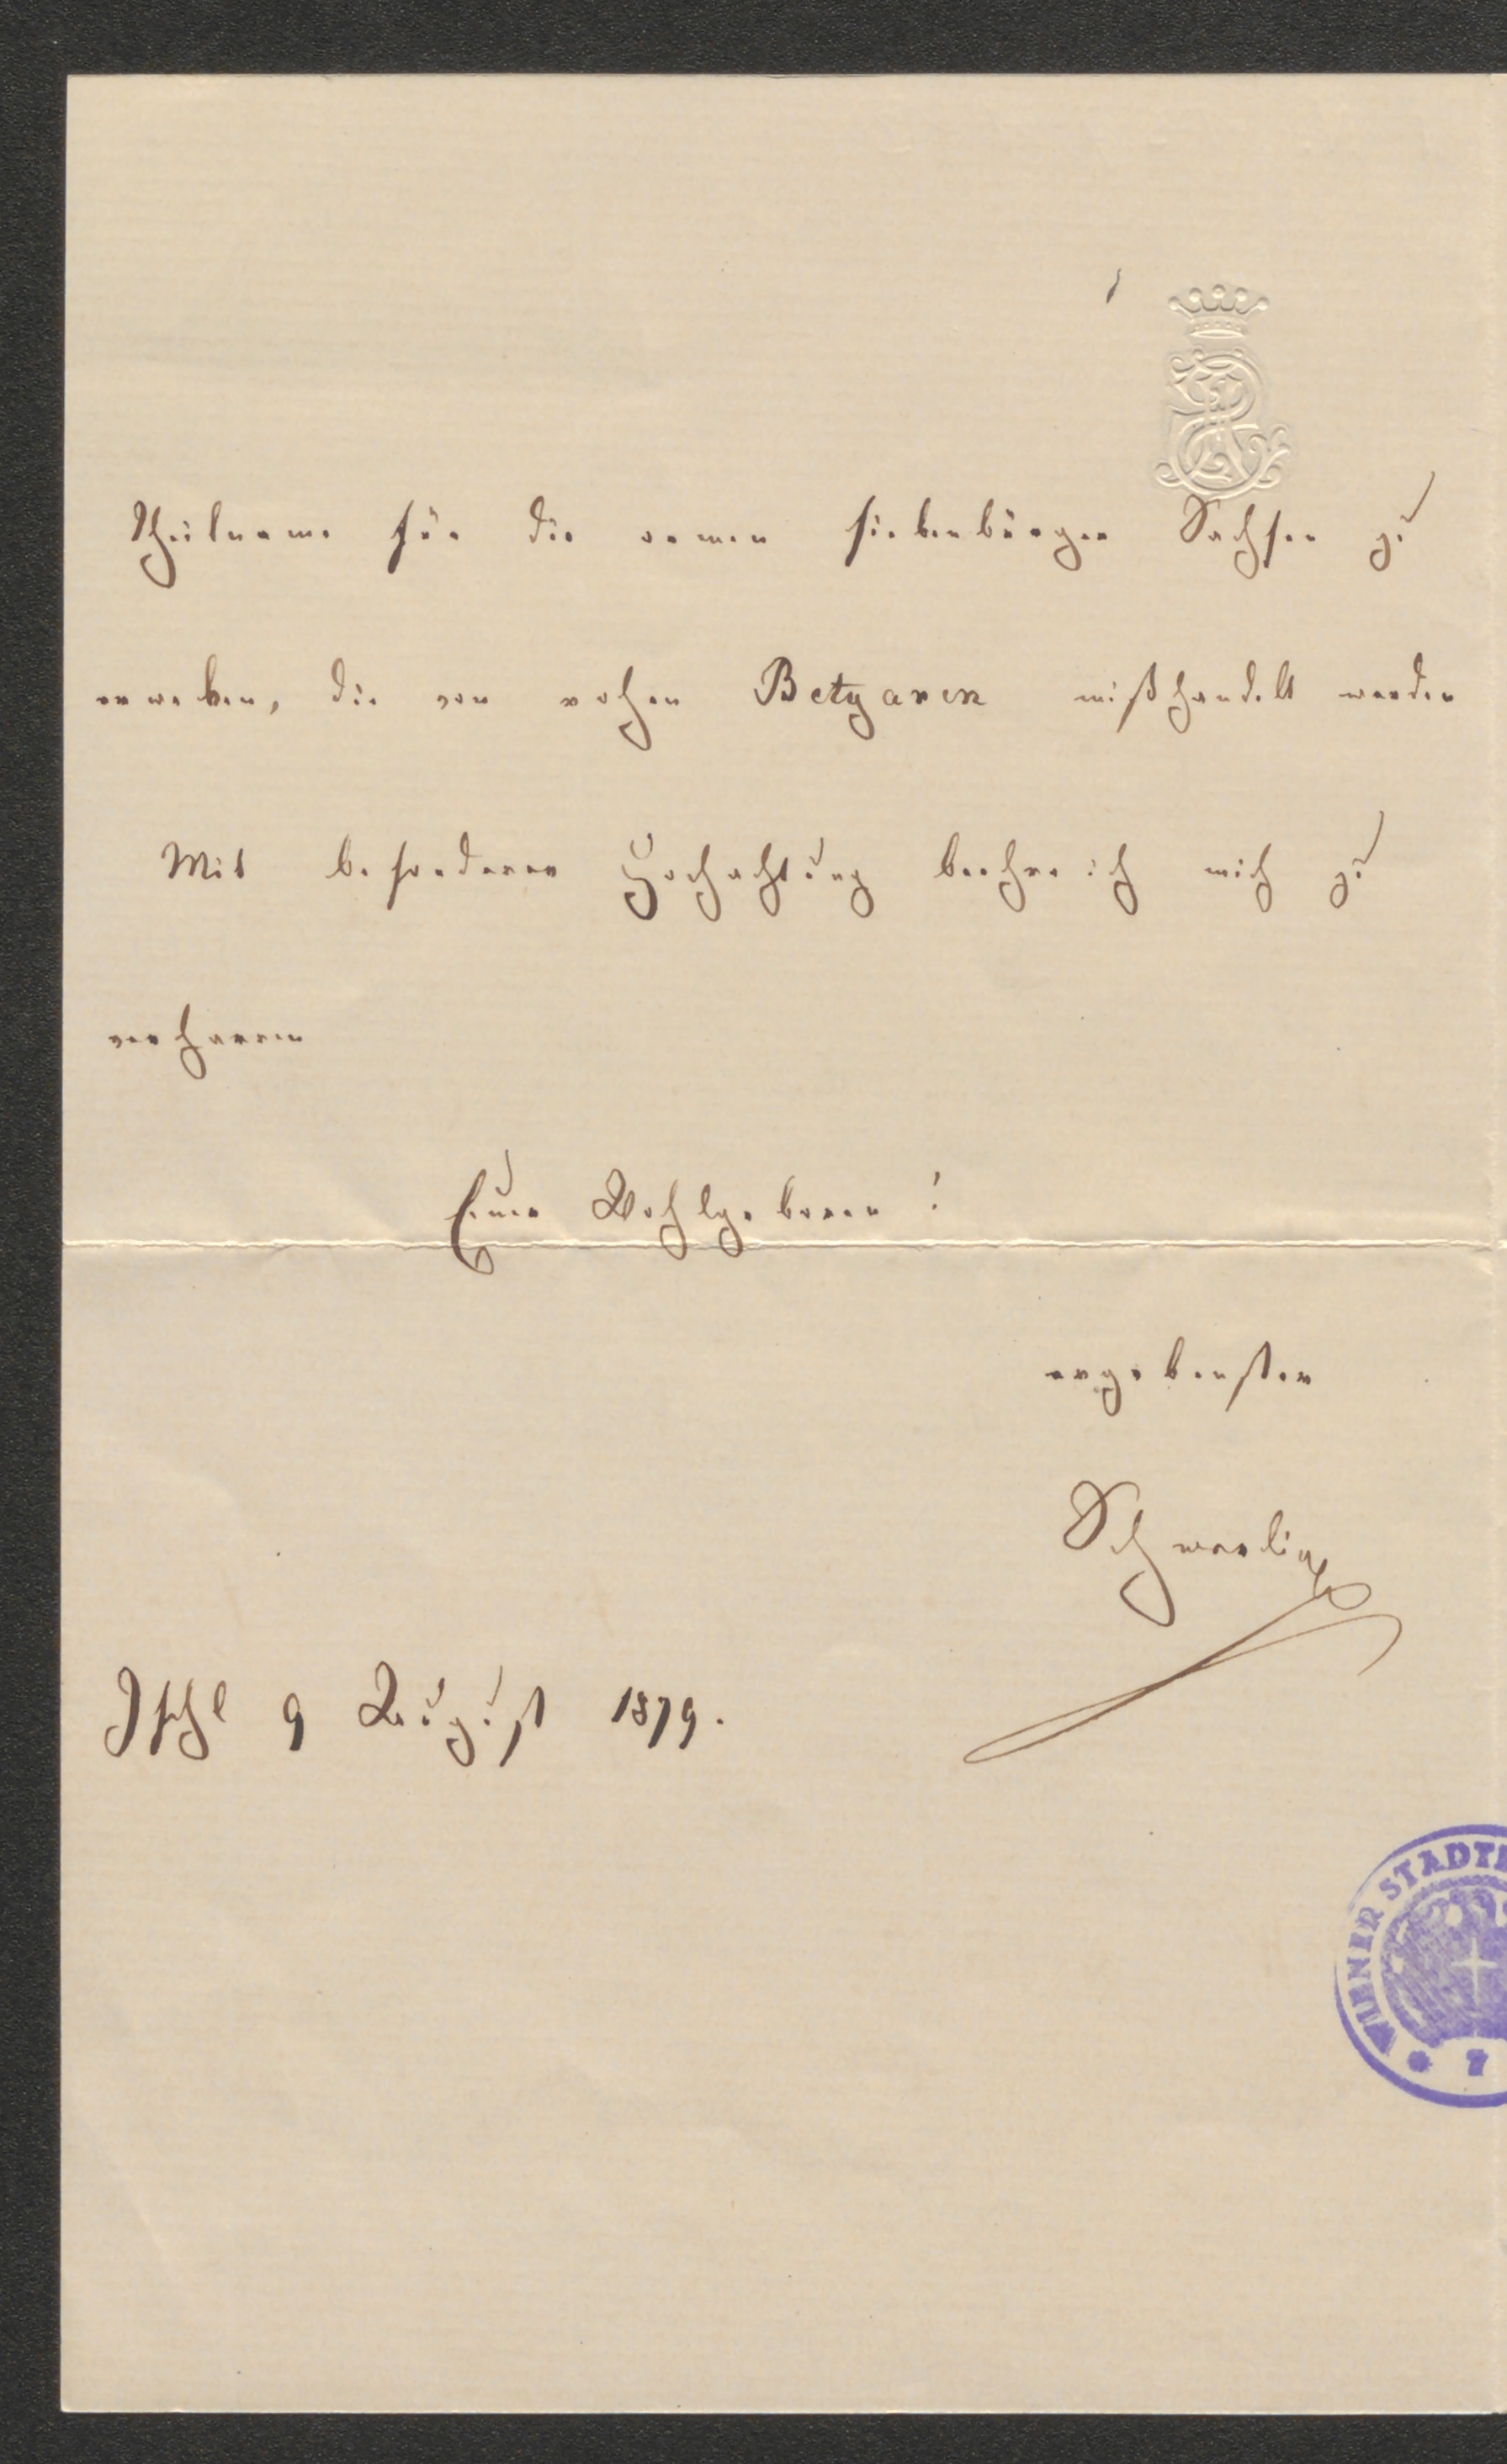 Theilname für die armen siebenbürger Sachsen zu
erwecken, die von rohen Betyaren mißhandelt werden
Mit besonderer Hochachtung beehre ich mich zu
verharren
Euer Wohlgeboren!
ergebenster
Schmerling
Ischl 9 August 1879.
WIENER STADT
7